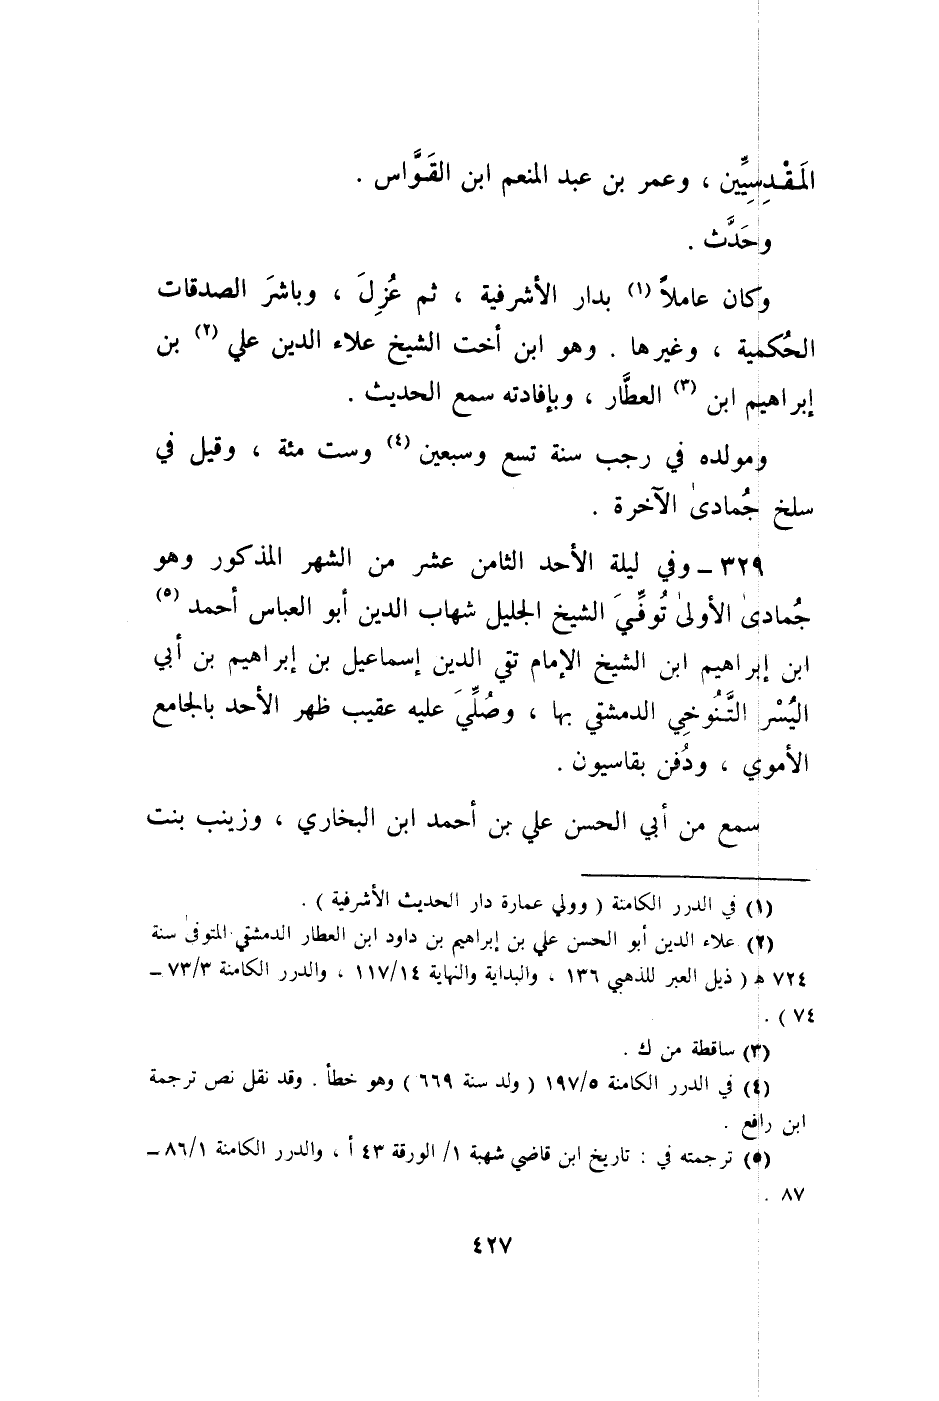 المَقْدِسِيِّين ، وعمر بن عبد المنعم ابن القَوَّاس .
وحَدَّث .
وكان عاملاً (١) بدار الأشرفية ، ثم عُزِلَ ، وباشرَ الصدقات
الحُكمية ، وغيرها . وهو ابن أخت الشيخ علاء الدين علي (٢) بن
إبراهيم ابن (٣) العطَّار ، وبإفادته سمع الحديث .
ومولده في رجب سنة تسع وسبعين (٤) وست مئة ، وقيل في
سلخ جُمادىٰ الآخرة .
٣٢٩ ـ وفي ليلة الأحد الثامن عشر من الشهر المذكور وهو
جُمادىٰ الأولىٰ تُوفِّيَ الشيخ الجليل شهاب الدين أبو العباس أحمد (٥)
ابن إبراهيم ابن الشيخ الإمام تقي الدين إسماعيل بن إبراهيم بن أبي
اليُسْر التَّنُوخِي الدمشقي بها ، وصُلِّيَ عليه عقيب ظهر الأحد بالجامع
الأموي ، ودُفن بقاسيون .
سمع من أبي الحسن علي بن أحمد ابن البخاري ، وزينب بنت
(١) في الدرر الكامنة ( وولي عمارة دار الحديث الأشرفية ) .
(٢) علاء الدين أبو الحسن علي بن إبراهيم بن داود ابن العطار الدمشقي المتوفىٰ سنة
٧٢٤ هـ ( ذيل العبر للذهبي ١٣٦ ، والبداية والنهاية ١١٧/١٤ ، والدرر الكامنة ٧٣/٣ ـ
٧٤ ) .
(٣) ساقطة من ك .
(٤) في الدرر الكامنة ١٩٧/٥ ( ولد سنة ٦٦٩ ) وهو خطأ . وقد نقل نص ترجمة
ابن رافع .
(٥) ترجمته في : تاريخ ابن قاضي شهبة ١/ الورقة ٤٣ أ ، والدرر الكامنة ٨٦/١ ـ
٨٧ .
٤٢٧